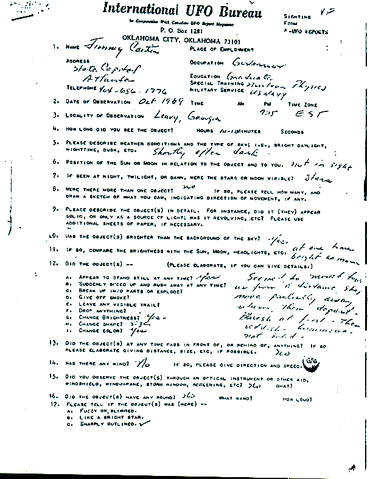 International UFO Bureau
In Cooperation With Canadian UFO Report Magazine
P. O. Box 1281
OKLAHOMA CITY, OKLAHOMA 73101
SIGHTING
FROM
UFO REPORTS
1. NAME Jimmy Carter PLACE OF EMPLOYMENT
ADDRESS State Capitol Atlanta
OCCUPATION Governor
EDUCATION Graduate
SPECIAL TRAINING Nuclear Physics
TELEPHONE 404-656-1776 MILITARY SERVICE US Navy
2. DATE OF OBSERVATION Oct 1969 TIME AM PM TIME ZONE
7:15 EST
3. LOCALITY OF OBSERVATION Leary, Georgia
4. HOW LONG DID YOU SEE THE OBJECT? HOURS 10-12 MINUTES SECONDS
5. PLEASE DESCRIBE WEATHER CONDITIONS AND THE TYPE OF SKY; I.E., BRIGHT DAYLIGHT,
NIGHTTIME, DUSK, ETC. Shortly after dark
6. POSITION OF THE SUN OR MOON IN RELATION TO THE OBJECT AND TO YOU. Not in sight
7. IF SEEN AT NIGHT, TWILIGHT, OR DAWN, WERE THE STARS OR MOON VISIBLE? Stars
8. WERE THERE MORE THAN ONE OBJECT? No IF SO, PLEASE TELL HOW MANY, AND
DRAW A SKETCH OF WHAT YOU SAW, INDICATING DIRECTION OF MOVEMENT, IF ANY.
9. PLEASE DESCRIBE THE OBJECT(S) IN DETAIL. FOR INSTANCE, DID IT (THEY) APPEAR
SOLID, OR ONLY AS A SOURCE OF LIGHT; WAS IT REVOLVING, ETC? PLEASE USE
ADDITIONAL SHEETS OF PAPER, IF NECESSARY.
10. WAS THE OBJECT(S) BRIGHTER THAN THE BACKGROUND OF THE SKY? Yes
11. IF SO, COMPARE THE BRIGHTNESS WITH THE SUN, MOON, HEADLIGHTS, ETC. at one time bright as moon
12. DID THE OBJECT(S) -- (PLEASE ELABORATE, IF YOU CAN GIVE DETAILS.)
A. APPEAR TO STAND STILL AT ANY TIME? yes
B. SUDDENLY SPEED UP AND RUSH AWAY AT ANY TIME?
C. BREAK UP INTO PARTS OR EXPLODE?
D. GIVE OFF SMOKE?
E. LEAVE ANY VISIBLE TRAIL?
F. DROP ANYTHING?
G. CHANGE BRIGHTNESS? Yes
H. CHANGE SHAPE? size
I. CHANGE COLOR? Yes
Seemed to move toward
us from a distance, stop
move partially away
return, then depart.
Bluish at first - Then
reddish - luminous -
not solid -
13. DID THE OBJECT(S) AT ANY TIME PASS IN FRONT OF, OR BEHIND OF, ANYTHING? IF SO
PLEASE ELABORATE GIVING DISTANCE, SIZE, ETC, IF POSSIBLE. No
14. WAS THERE ANY WIND? No IF SO, PLEASE GIVE DIRECTION AND SPEED.
15. DID YOU OBSERVE THE OBJECT(S) THROUGH AN OPTICAL INSTRUMENT OR OTHER AID,
WINDSHIELD, WINDOWPANE, STORM WINDOW, SCREENING, ETC? No WHAT?
16. DID THE OBJECT(S) HAVE ANY SOUND? No WHAT KIND? HOW LOUD?
17. PLEASE TELL IF THE OBJECT(S) WAS (WERE) --
A. FUZZY OR BLURRED.
B. LIKE A BRIGHT STAR.
C. SHARPLY OUTLINED. ✓